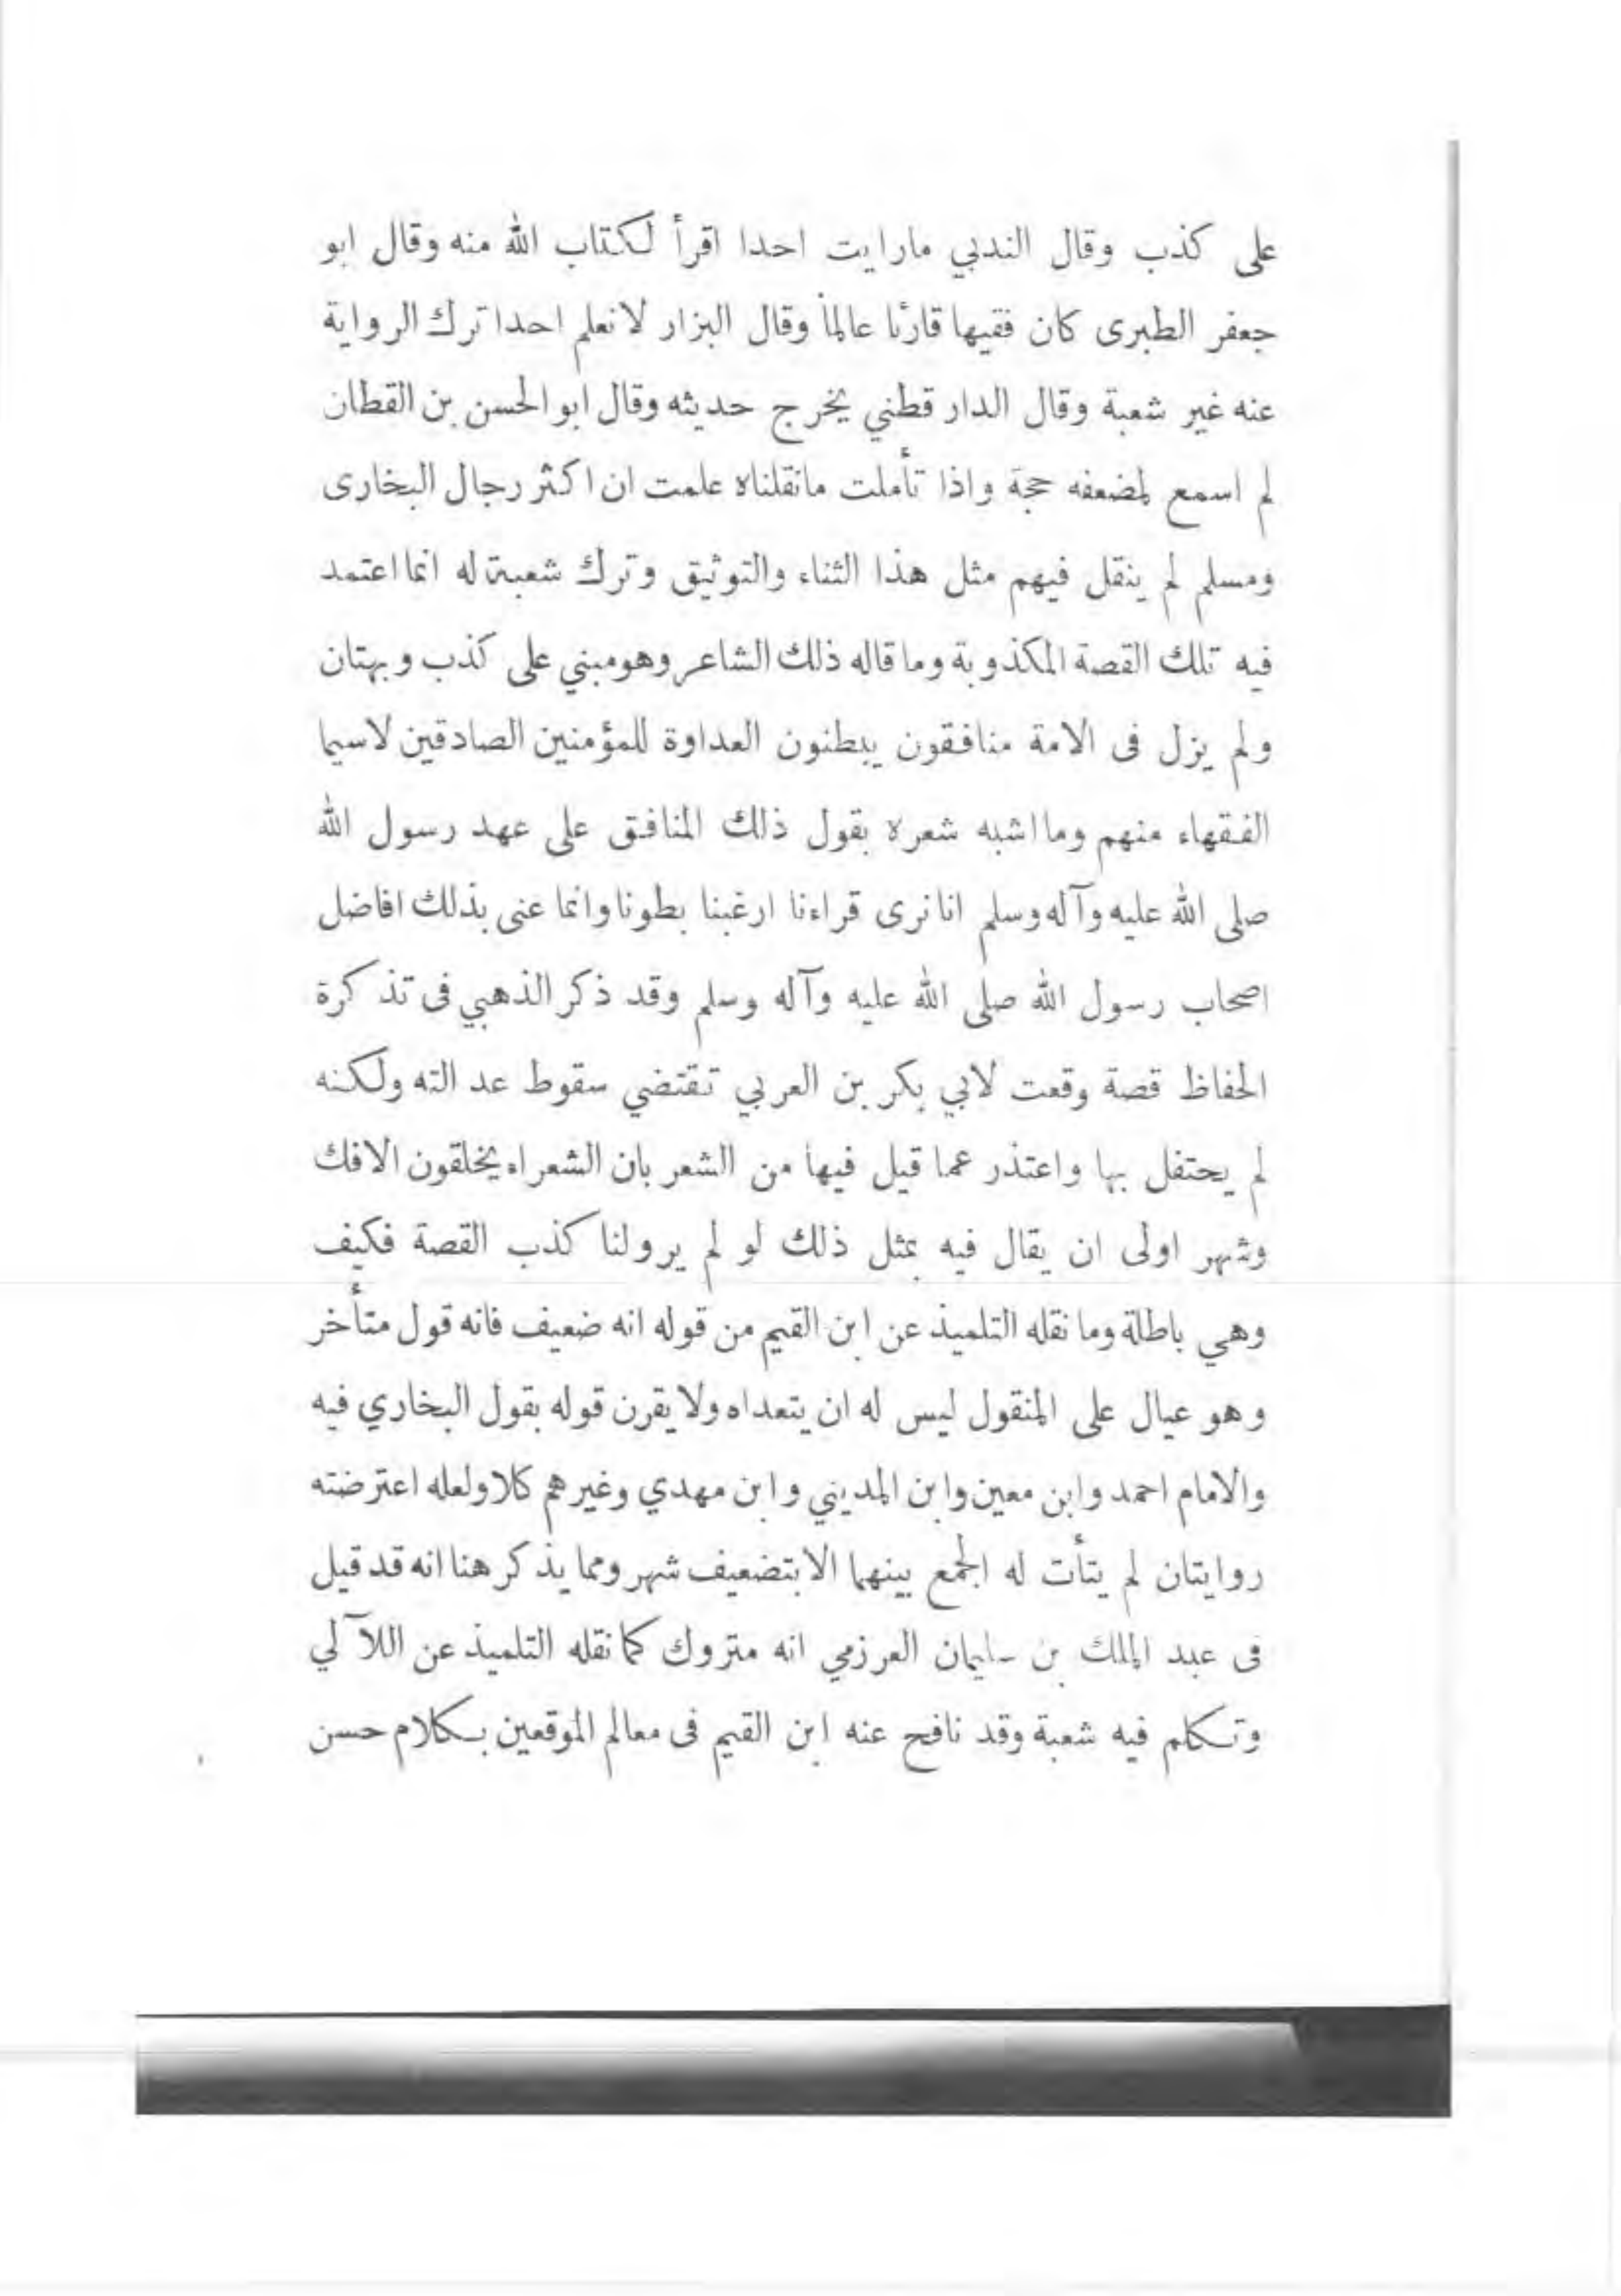 على كذب وقال الندبي مارايت احدا اقرأ لكتاب الله منه وقال ابو
جعفر الطبرى كان فقيها قارئا عالما وقال البزار لانعلم احدا ترك الرواية
عنه غير شعبة وقال الدار قطني يخرج حديثه وقال ابو الحسن بن القطان
لم اسمع لمضعفه حجة واذا تأملت مانقلناه علمت ان اكثر رجال البخارى
ومسلم لم ينقل فيهم مثل هذا الثناء والتوثيق وترك شعبة له انما اعتمد
فيه تلك القصة المكذوبة وما قاله ذلك الشاعر وهو مبني على كذب وبهتان
ولم يزل فى الامة منافقون يبطنون العداوة للمؤمنين الصادقين لاسيما
الفقهاء منهم وما اشبه شعره بقول ذلك المنافق على عهد رسول الله
صلى الله عليه وآله وسلم انا نرى قراءنا ارغبنا بطونا وانما عنى بذلك افاضل
اصحاب رسول الله صلى الله عليه وآله وسلم وقد ذكر الذهبي فى تذكرة
الحفاظ قصة وقعت لابي بكر بن العربي تقتضي سقوط عدالته ولكنه
لم يحتفل بها واعتذر عما قيل فيها من الشعر بان الشعراء يخلقون الافك
وشهر اولى ان يقال فيه بمثل ذلك لو لم يرو لنا كذب القصة فكيف
وهي باطلة وما نقله التلميذ عن ابن القيم من قوله انه ضعيف فانه قول متأخر
وهو عيال على المنقول ليس له ان يتعداه ولا يقرن قوله بقول البخاري فيه
والامام احمد وابن معين وابن المديني وابن مهدي وغيرهم كلا ولعله اعترضته
روايتان لم يتأت له الجمع بينهما الا بتضعيف شهر ومما يذكر هنا انه قد قيل
فى عبد الملك بن سليمان العرزمي انه متروك كما نقله التلميذ عن اللآلي
وتكلم فيه شعبة وقد نافح عنه ابن القيم فى معالم الموقعين بكلام حسن